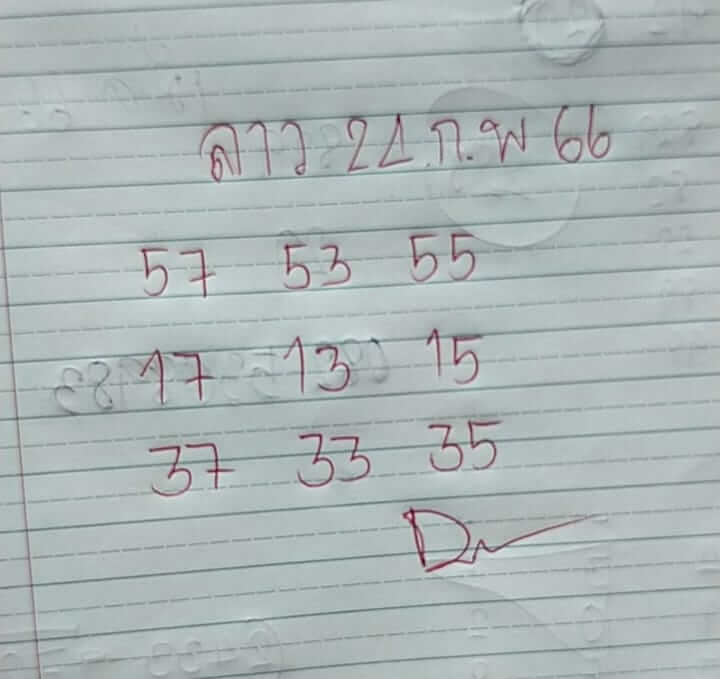 ลาว 24 ก.พ 66
57 53 55
17 13 15
37 33 35